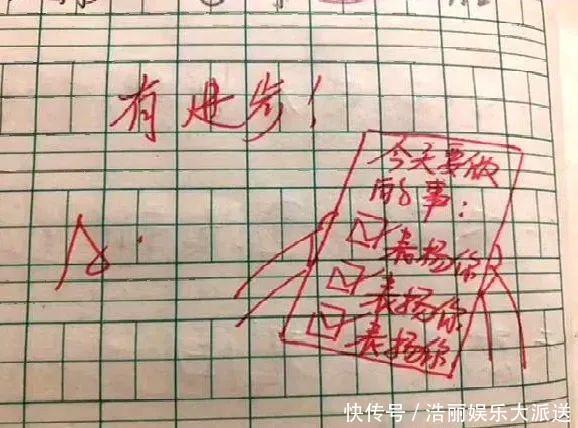 有进步!
今天要做
的事:
表扬你
表扬你
表扬你
快传号/浩丽娱乐大派送